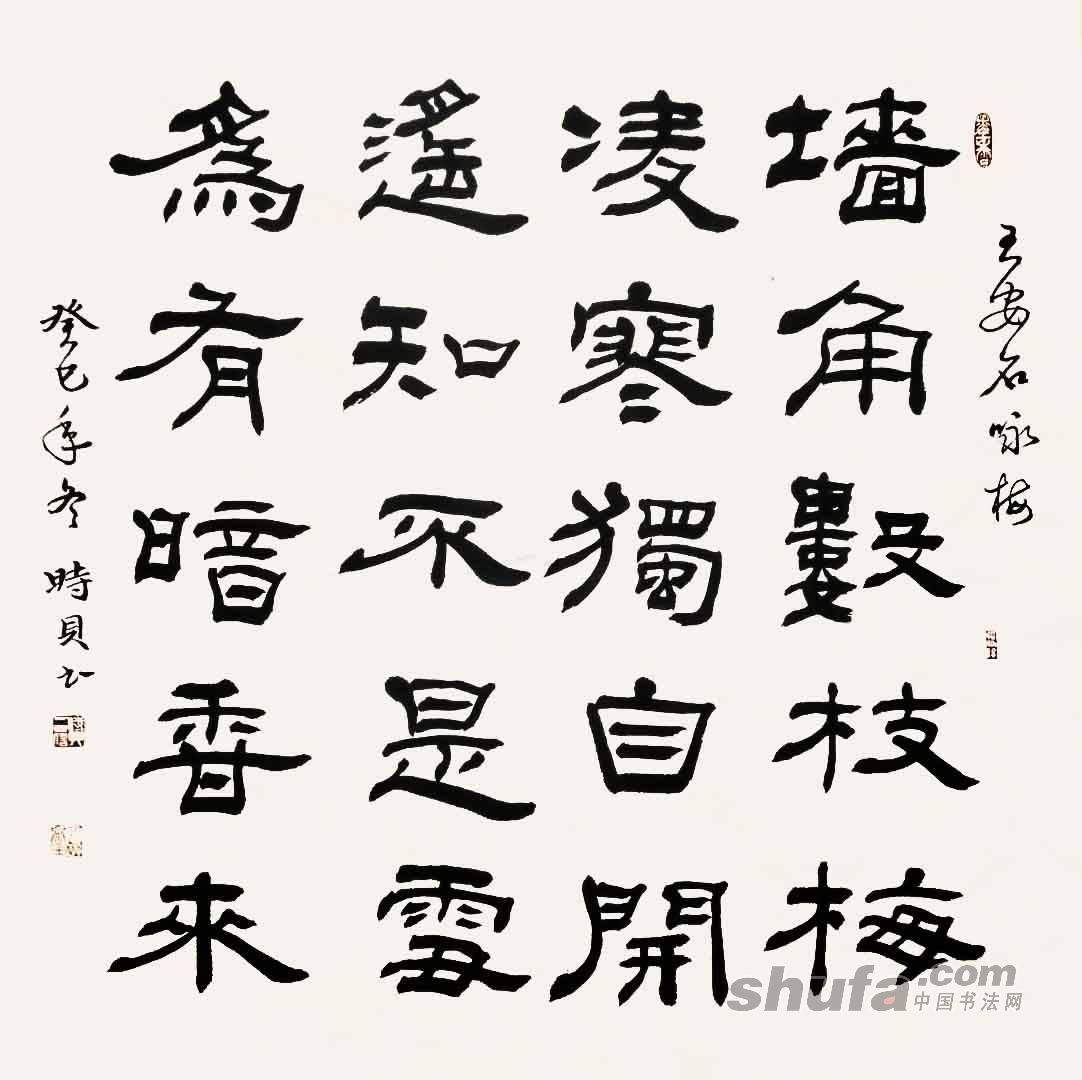 王安石咏梅
墙角數枝梅
凌寒獨自開
遙知不是雪
為有暗香來
癸巳年冬 時貝书
shufa.com
中国书法网